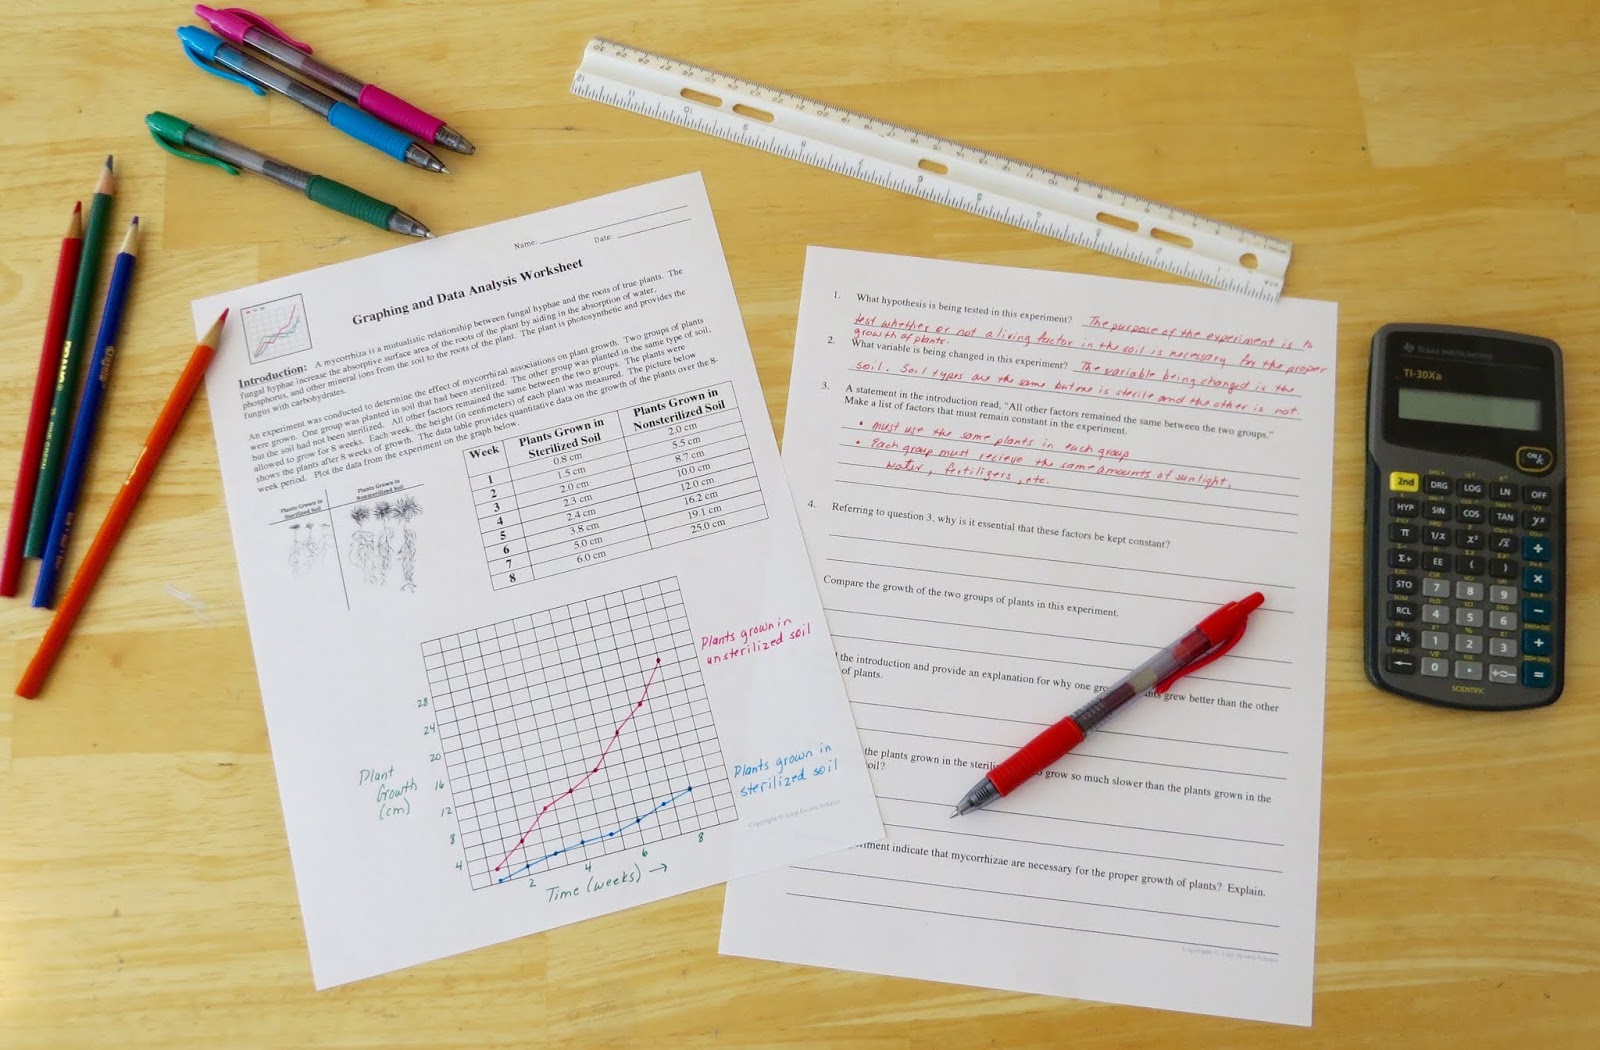 Name:
Date:
Graphing and Data Analysis Worksheet
Introduction: A mycorrhiza is a mutualistic relationship between fungal hyphae and the roots of true plants. The
fungal hyphae increase the absorptive surface area of the roots of the plant by aiding in the absorption of water,
phosphorus, and other mineral ions from the soil to the roots of the plant. The plant is photosynthetic and provides the
fungus with carbohydrates.
An experiment was conducted to determine the effect of mycorrhizal associations on plant growth. Two groups of plants
were grown. One group was planted in soil that had been sterilized. The other group was planted in the same type of soil,
but the soil had not been sterilized. All other factors remained the same between the two groups. The plants were
allowed to grow for 8 weeks. Each week, the height (in centimeters) of each plant was measured. The picture below
shows the plants after 8 weeks of growth. The data table provides quantitative data on the growth of the plants over the 8-
week period. Plot the data from the experiment on the graph below.
Plants Grown in
Sterilized Soil
Plants Grown in
Nonsterilized Soil
Week
Plants Grown in
Sterilized Soil
Plants Grown in
Nonsterilized Soil
1 0.8 cm 2.0 cm
2 1.5 cm 5.5 cm
3 2.0 cm 8.7 cm
4 2.3 cm 10.0 cm
5 2.4 cm 12.0 cm
6 3.8 cm 16.2 cm
7 5.0 cm 19.1 cm
8 6.0 cm 25.0 cm
Plants grown in
unsterilized soil
Plants grown in
sterilized soil
Plant
Growth
(cm)
28
24
20
16
12
8
4
2 4 6 8
Time (weeks) →
Copyright © Amy Brown Science
1. What hypothesis is being tested in this experiment? The purpose of the experiment is to
test whether or not a living factor in the soil is necessary for the proper
growth of plants.
2. What variable is being changed in this experiment? The variable being changed is the
soil. Soil types are the same but one is sterile and the other is not.
3. A statement in the introduction read, "All other factors remained the same between the two groups."
Make a list of factors that must remain constant in the experiment.
• must use the same plants in each group
• Each group must recieve the same amounts of sunlight,
water, fertilizers, etc.
4. Referring to question 3, why is it essential that these factors be kept constant?
Compare the growth of the two groups of plants in this experiment.
the introduction and provide an explanation for why one grew better than the other
of plants.
the plants grown in the grow so much slower than the plants grown in the
soil?
indicate that mycorrhizae are necessary for the proper growth of plants? Explain.
Copyright © Amy Brown Science
TEXAS INSTRUMENTS
TI-30Xa
ON/C
2nd DRG LOG LN OFF
HYP SIN COS TAN yx
π 1/x x² √x ÷
Σ+ EE ( ) ×
STO 7 8 9 −
RCL 4 5 6 +
ab/c 1 2 3 +
← 0 . +⇄− =
SCIENTIFIC